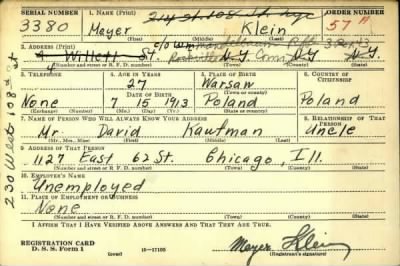 SERIAL NUMBER 1. NAME (Print) ORDER NUMBER
3380 Mayer Klein 57
(First) (Middle) (Last)
2. ADDRESS (Print)
4 Willett St. c/o N.Y. Conn. N.Y. N.Y.
(Number and street or R. F. D. number) (Town) (County) (State)
3. TELEPHONE 4. AGE IN YEARS 5. PLACE OF BIRTH 6. COUNTRY OF CITIZENSHIP
27 Warsaw
DATE OF BIRTH
None 7 15 1913 Poland Poland
(Exchange) (Number) (Mo.) (Day) (Yr.) (State or country)
230 West 108th St
7. NAME OF PERSON WHO WILL ALWAYS KNOW YOUR ADDRESS 8. RELATIONSHIP OF THAT PERSON
Mr. David Kaufman Uncle
(Mr., Mrs., Miss) (First) (Middle) (Last)
9. ADDRESS OF THAT PERSON
1127 East 62 St. Chicago, Ill.
(Number and street or R. F. D. number) (Town) (County) (State)
10. EMPLOYER'S NAME
Unemployed
11. PLACE OF EMPLOYMENT OR BUSINESS
None
(Number and street or R. F. D. number) (Town) (County) (State)
I AFFIRM THAT I HAVE VERIFIED ABOVE ANSWERS AND THAT THEY ARE TRUE.
REGISTRATION CARD
D. S. S. Form 1 (over) 16—17105 Mayer Klein
(Registrant's signature)